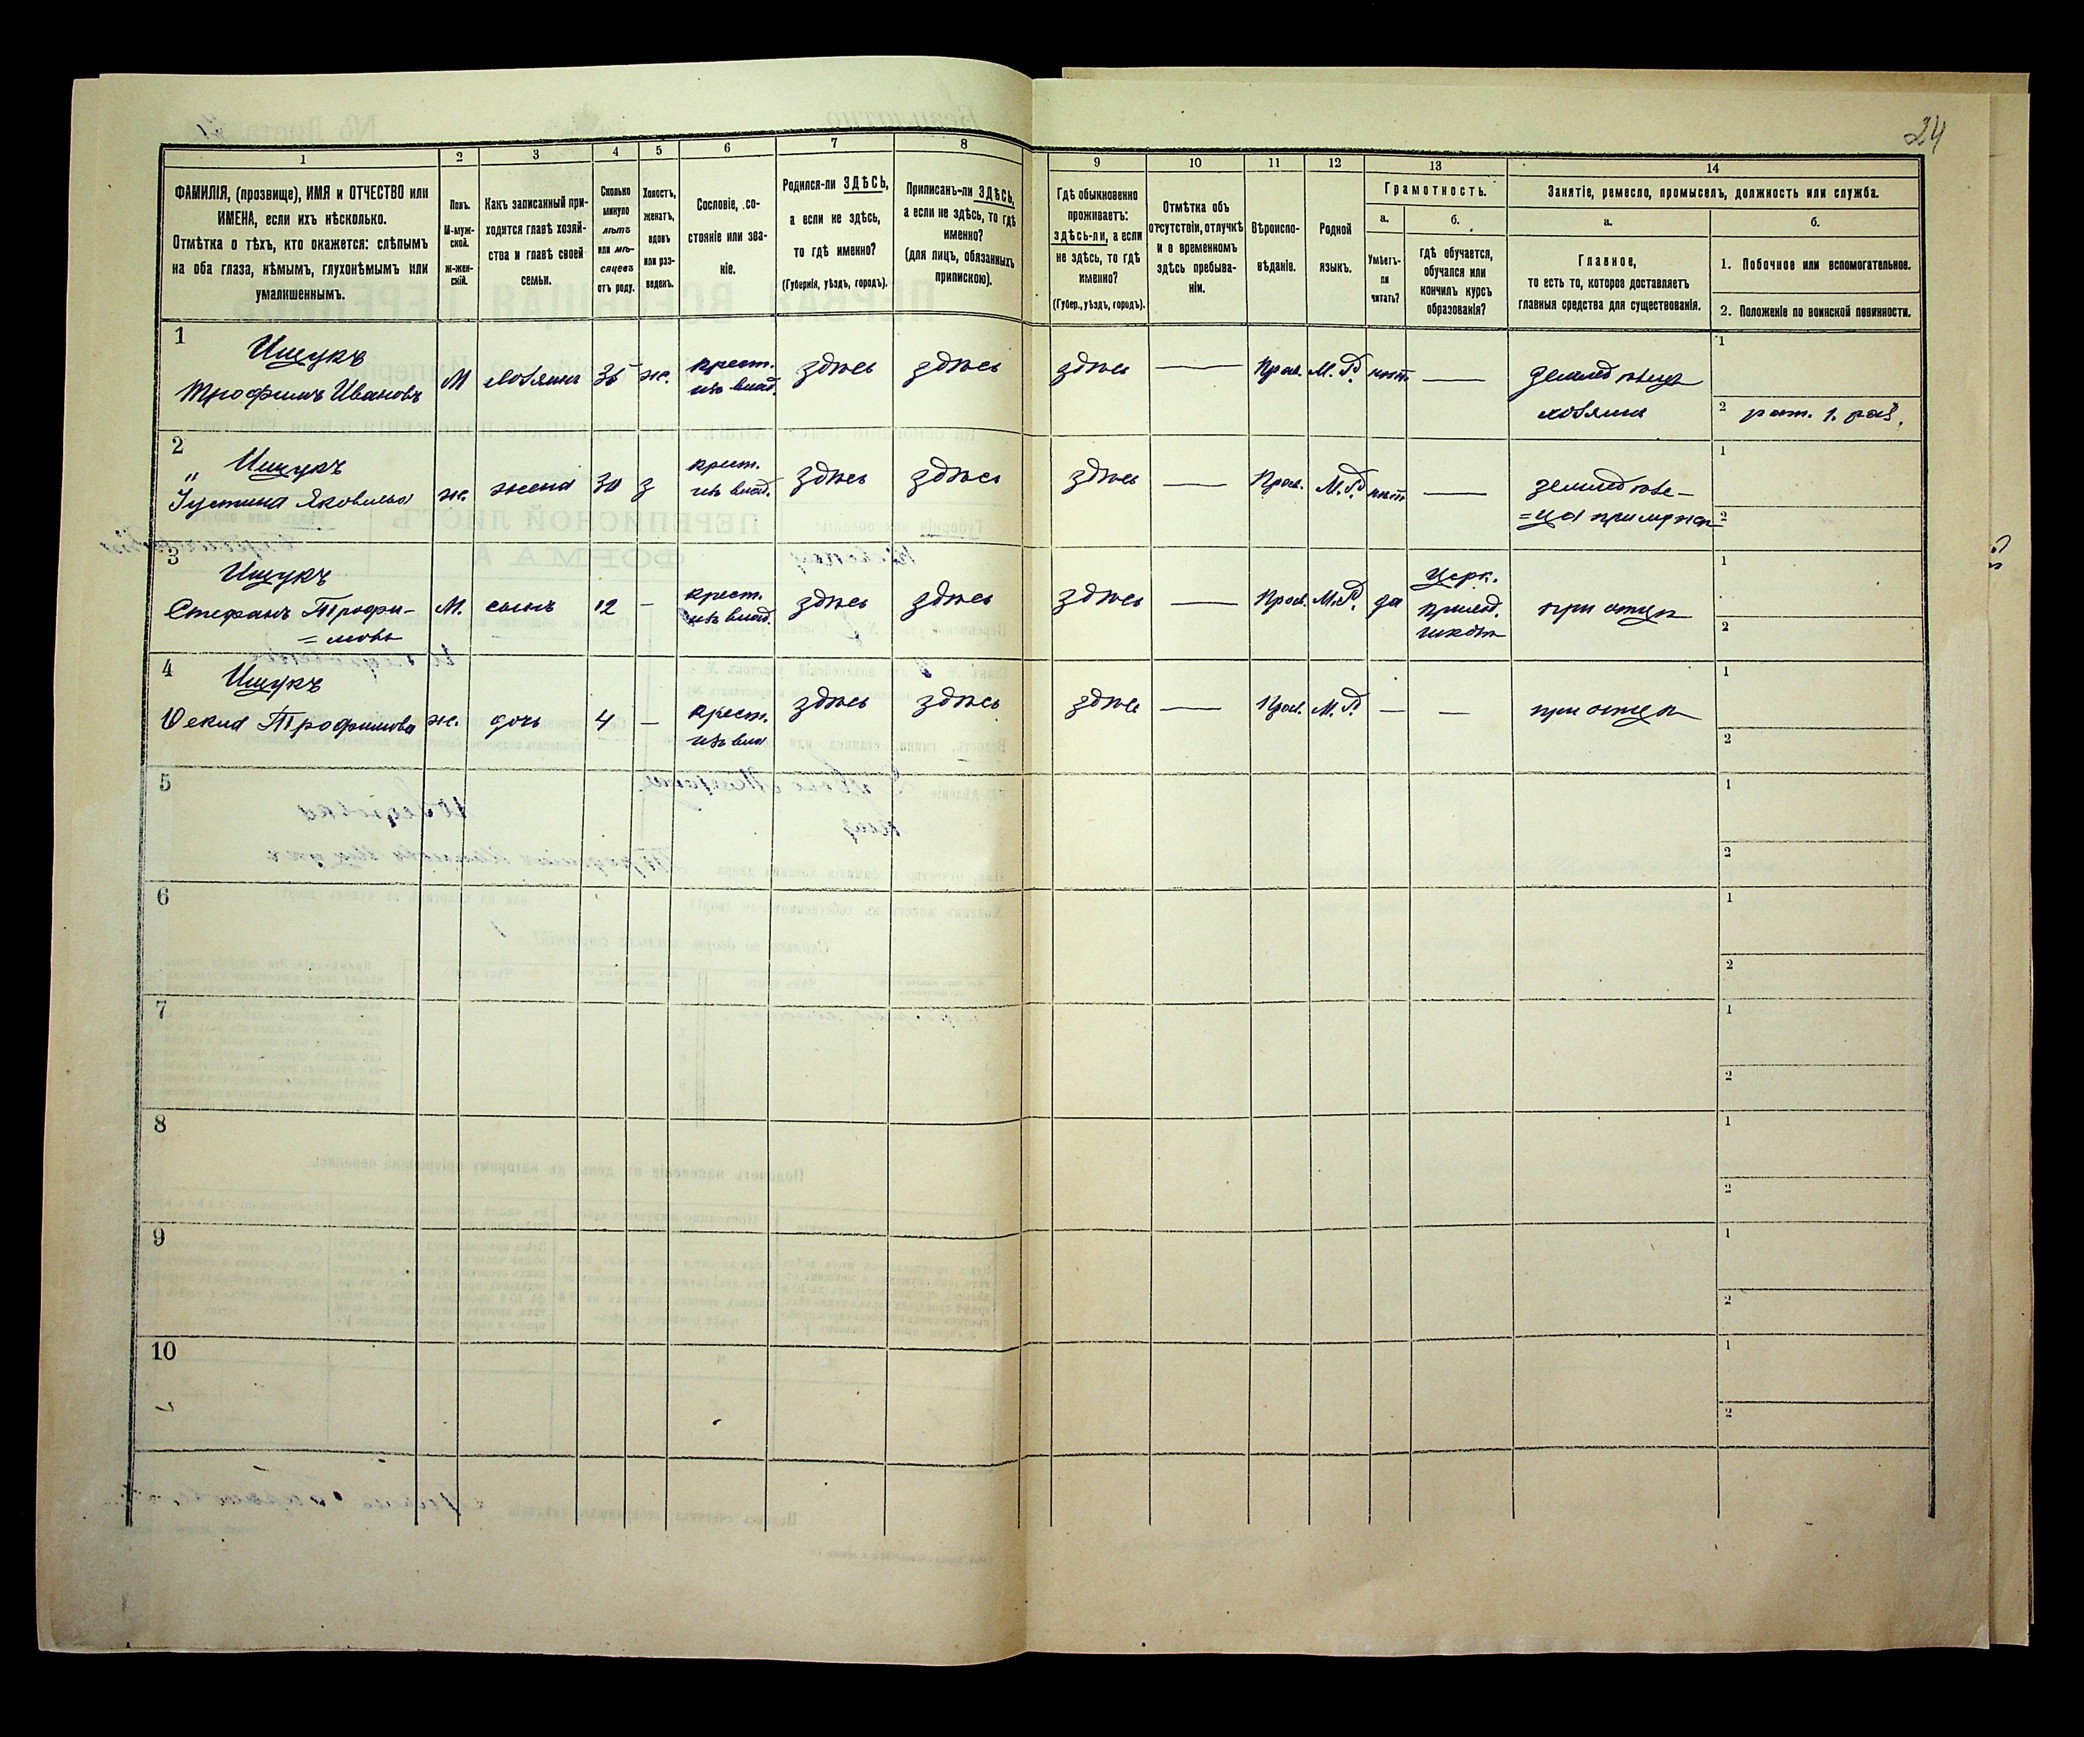 24
1 2 3 4 5 6 7 8 9 10 11 12 13 14
ФАМИЛІЯ, (прозвище), ИМЯ и ОТЧЕСТВО или
ИМЕНА, если ихъ нѣсколько.
Отмѣтка о тѣхъ, кто окажется: слѣпымъ
на оба глаза, нѣмымъ, глухонѣмымъ или
умалишеннымъ.
Полъ.
М-муж-
ской.
ж-жен-
скій.
Какъ записанный при-
ходится главѣ хозяй-
ства и главѣ своей
семьи.
Сколько
минуло
лѣтъ
или мѣ-
сяцевъ
отъ роду.
Холостъ,
женатъ,
вдовъ
или раз-
веденъ.
Сословіе, со-
стояніе или зва-
ніе.
Родился-ли ЗДѢСЬ,
а если не здѣсь,
то гдѣ именно?
(Губернія, уѣздъ, городъ).
Приписанъ-ли ЗДѢСЬ,
а если не здѣсь, то гдѣ
именно?
(для лицъ, обязанныхъ
припискою).
Гдѣ обыкновенно
проживаетъ:
здѣсь-ли, а если
не здѣсь, то гдѣ
именно?
(Губер., уѣздъ, городъ).
Отмѣтка объ
отсутствіи, отлучкѣ
и о временномъ
здѣсь пребыва-
ніи.
Вѣроиспо-
вѣданіе.
Родной
языкъ.
Грамотность.
а.
Умѣетъ-
ли
читать?
б.
гдѣ обучается,
обучался или
кончилъ курсъ
образованія?
Занятіе, ремесло, промыселъ, должность или служба.
а.
Главное,
то есть то, которое доставляетъ
главныя средства для существованія.
б.
1. Побочное или вспомогательное.
2. Положеніе по воинской повинности.
1
Ищукъ
Трофимъ Ивановъ
М
хозяинъ
35
ж.
крест.
изъ влад.
здѣсь
здѣсь
здѣсь
—
Прав.
М. Р.
нѣтъ
—
земледѣлецъ
хозяинъ
1
2 рат. 1. раз.
2
Ищукъ
Іустина Яковлева
ж.
жена
30
з
крест.
изъ влад.
здѣсь
здѣсь
здѣсь
—
Прав.
М. Р.
нѣтъ
—
земледѣле-
=ца при мужѣ
1
2
3
Ищукъ
Стефанъ Трофи-
=мовъ
М.
сынъ
12
—
крест.
изъ влад.
здѣсь
здѣсь
здѣсь
—
Прав.
М. Р.
да
церк.
приход.
школѣ
при отцѣ
1
2
4
Ищукъ
Ѳекла Трофимова
ж.
дочь
4
—
крест.
изъ вла
здѣсь
здѣсь
здѣсь
—
Прав.
М. Р.
—
—
при отцѣ
1
2
5
1
2
6
1
2
7
1
2
8
1
2
9
1
2
10
1
2